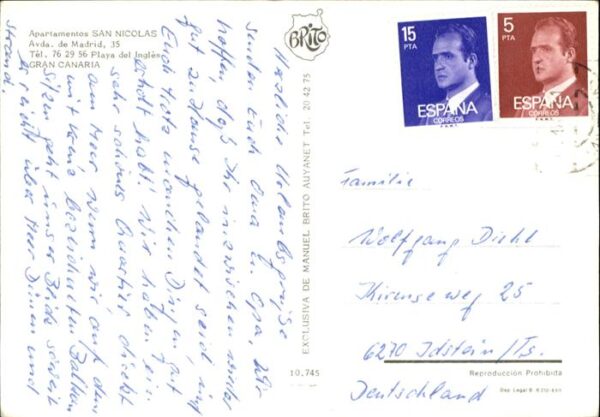 Apartamentos SAN NICOLAS
Avda. de Madrid, 35
Tel. 76 29 56 Playa del Inglés
GRAN CANARIA
BRITO
EXCLUSIVA DE MANUEL BRITO AUYANET Tel. 20 42 75
10.745
15
PTA
ESPAÑA
CORREOS
5
PTA
ESPAÑA
CORREOS
Herzliche Urlaubsgrüße
senden Euch Oma u. Opa. Wir
hoffen, daß Ihr inzwischen wieder
gut zu Hause gelandet seid und
Euch trotz manchen Dingen, gut
erholt habt. Wir haben ein
sehr schönes Quartier direkt
am Meer. Wenn wir auf dem
mit Kreuz bezeichneten Balkon
sitzen geht unser Blick soweit
es geht über Meer Dünen und
Strand.
Familie
Wolfgang Diehl
Weg 25
6270 Idstein/Ts.
Deutschland
Reproducción Prohibida
Dep. Legal B.